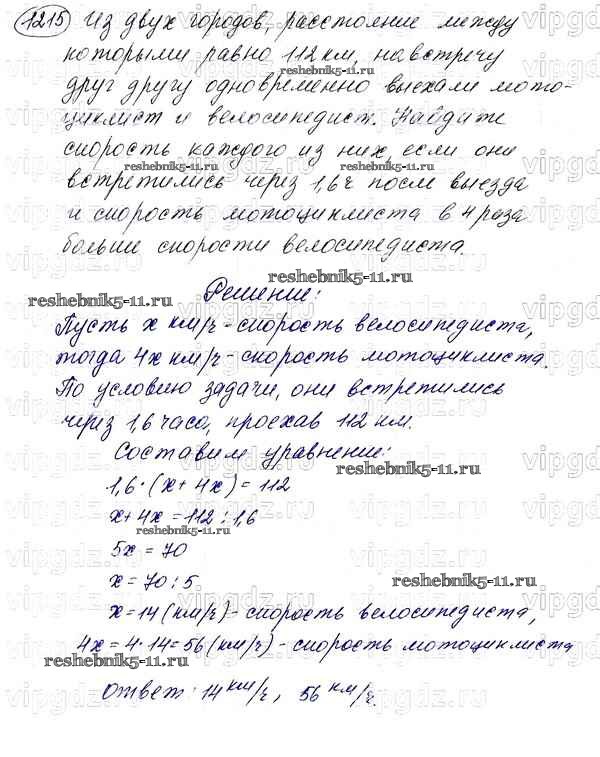 1215 Из двух городов, расстояние между
которыми равно 112 км, навстречу
друг другу одновременно выехали мото-
циклист и велосипедист. Найдите
скорость каждого из них, если они
встретились через 1,6 ч после выезда
и скорость мотоциклиста в 4 раза
больше скорости велосипедиста.
Решение:
Пусть x км/ч - скорость велосипедиста,
тогда 4x км/ч - скорость мотоциклиста.
По условию задачи, они встретились
через 1,6 часа, проехав 112 км.
Составим уравнение:
1,6·(x+4x)=112
x+4x=112:1,6
5x=70
x=70:5
x=14(км/ч)-скорость велосипедиста,
4x=4·14=56(км/ч)-скорость мотоциклиста
Ответ: 14 км/ч, 56 км/ч.
reshebnik5-11.ru
vipgdz.ru